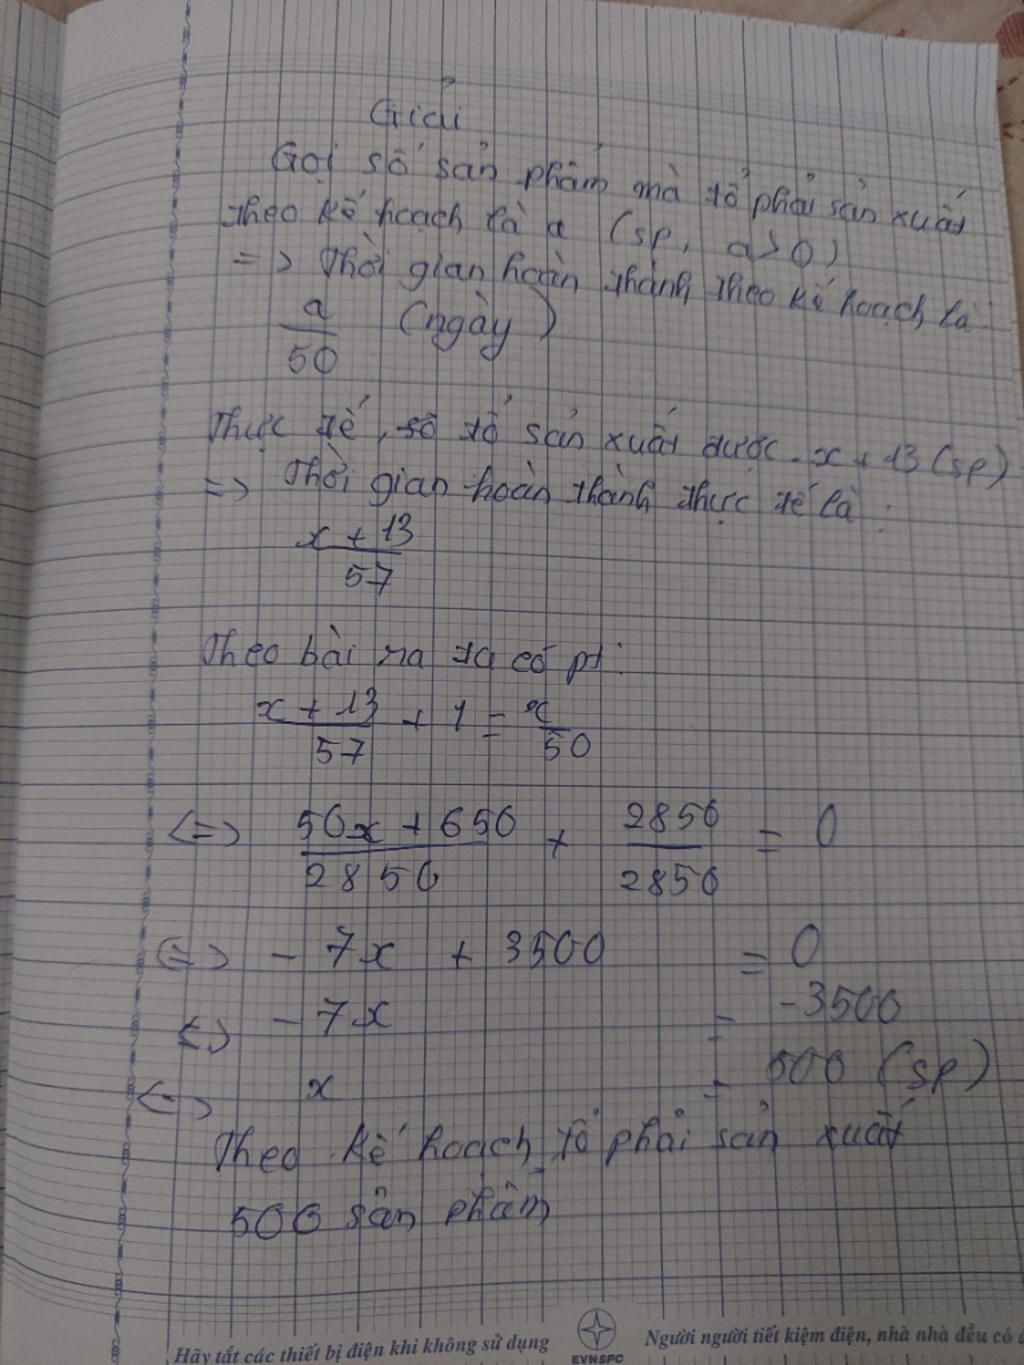 Giải
Gọi số sản phẩm mà tổ phải sản xuất
theo kế hoạch là a (sp, a > 0)
=> Thời gian hoàn thành theo kế hoạch là
a/50 (ngày)
Thực tế, số tổ sản xuất được x + 13 (sp)
=> Thời gian hoàn thành thực tế là:
x + 13/57
Theo bài ra ta có pt:
x + 13/57 + 1 = x/50
<=> 50x + 650/2850 + 2850/2850 = 0
<=> - 7x + 3500 = 0
<=> - 7x = -3500
<=> x = 500 (sp)
Theo kế hoạch tổ phải sản xuất
500 sản phẩm
Hãy tắt các thiết bị điện khi không sử dụng
EVNSPC
Người người tiết kiệm điện, nhà nhà đều có